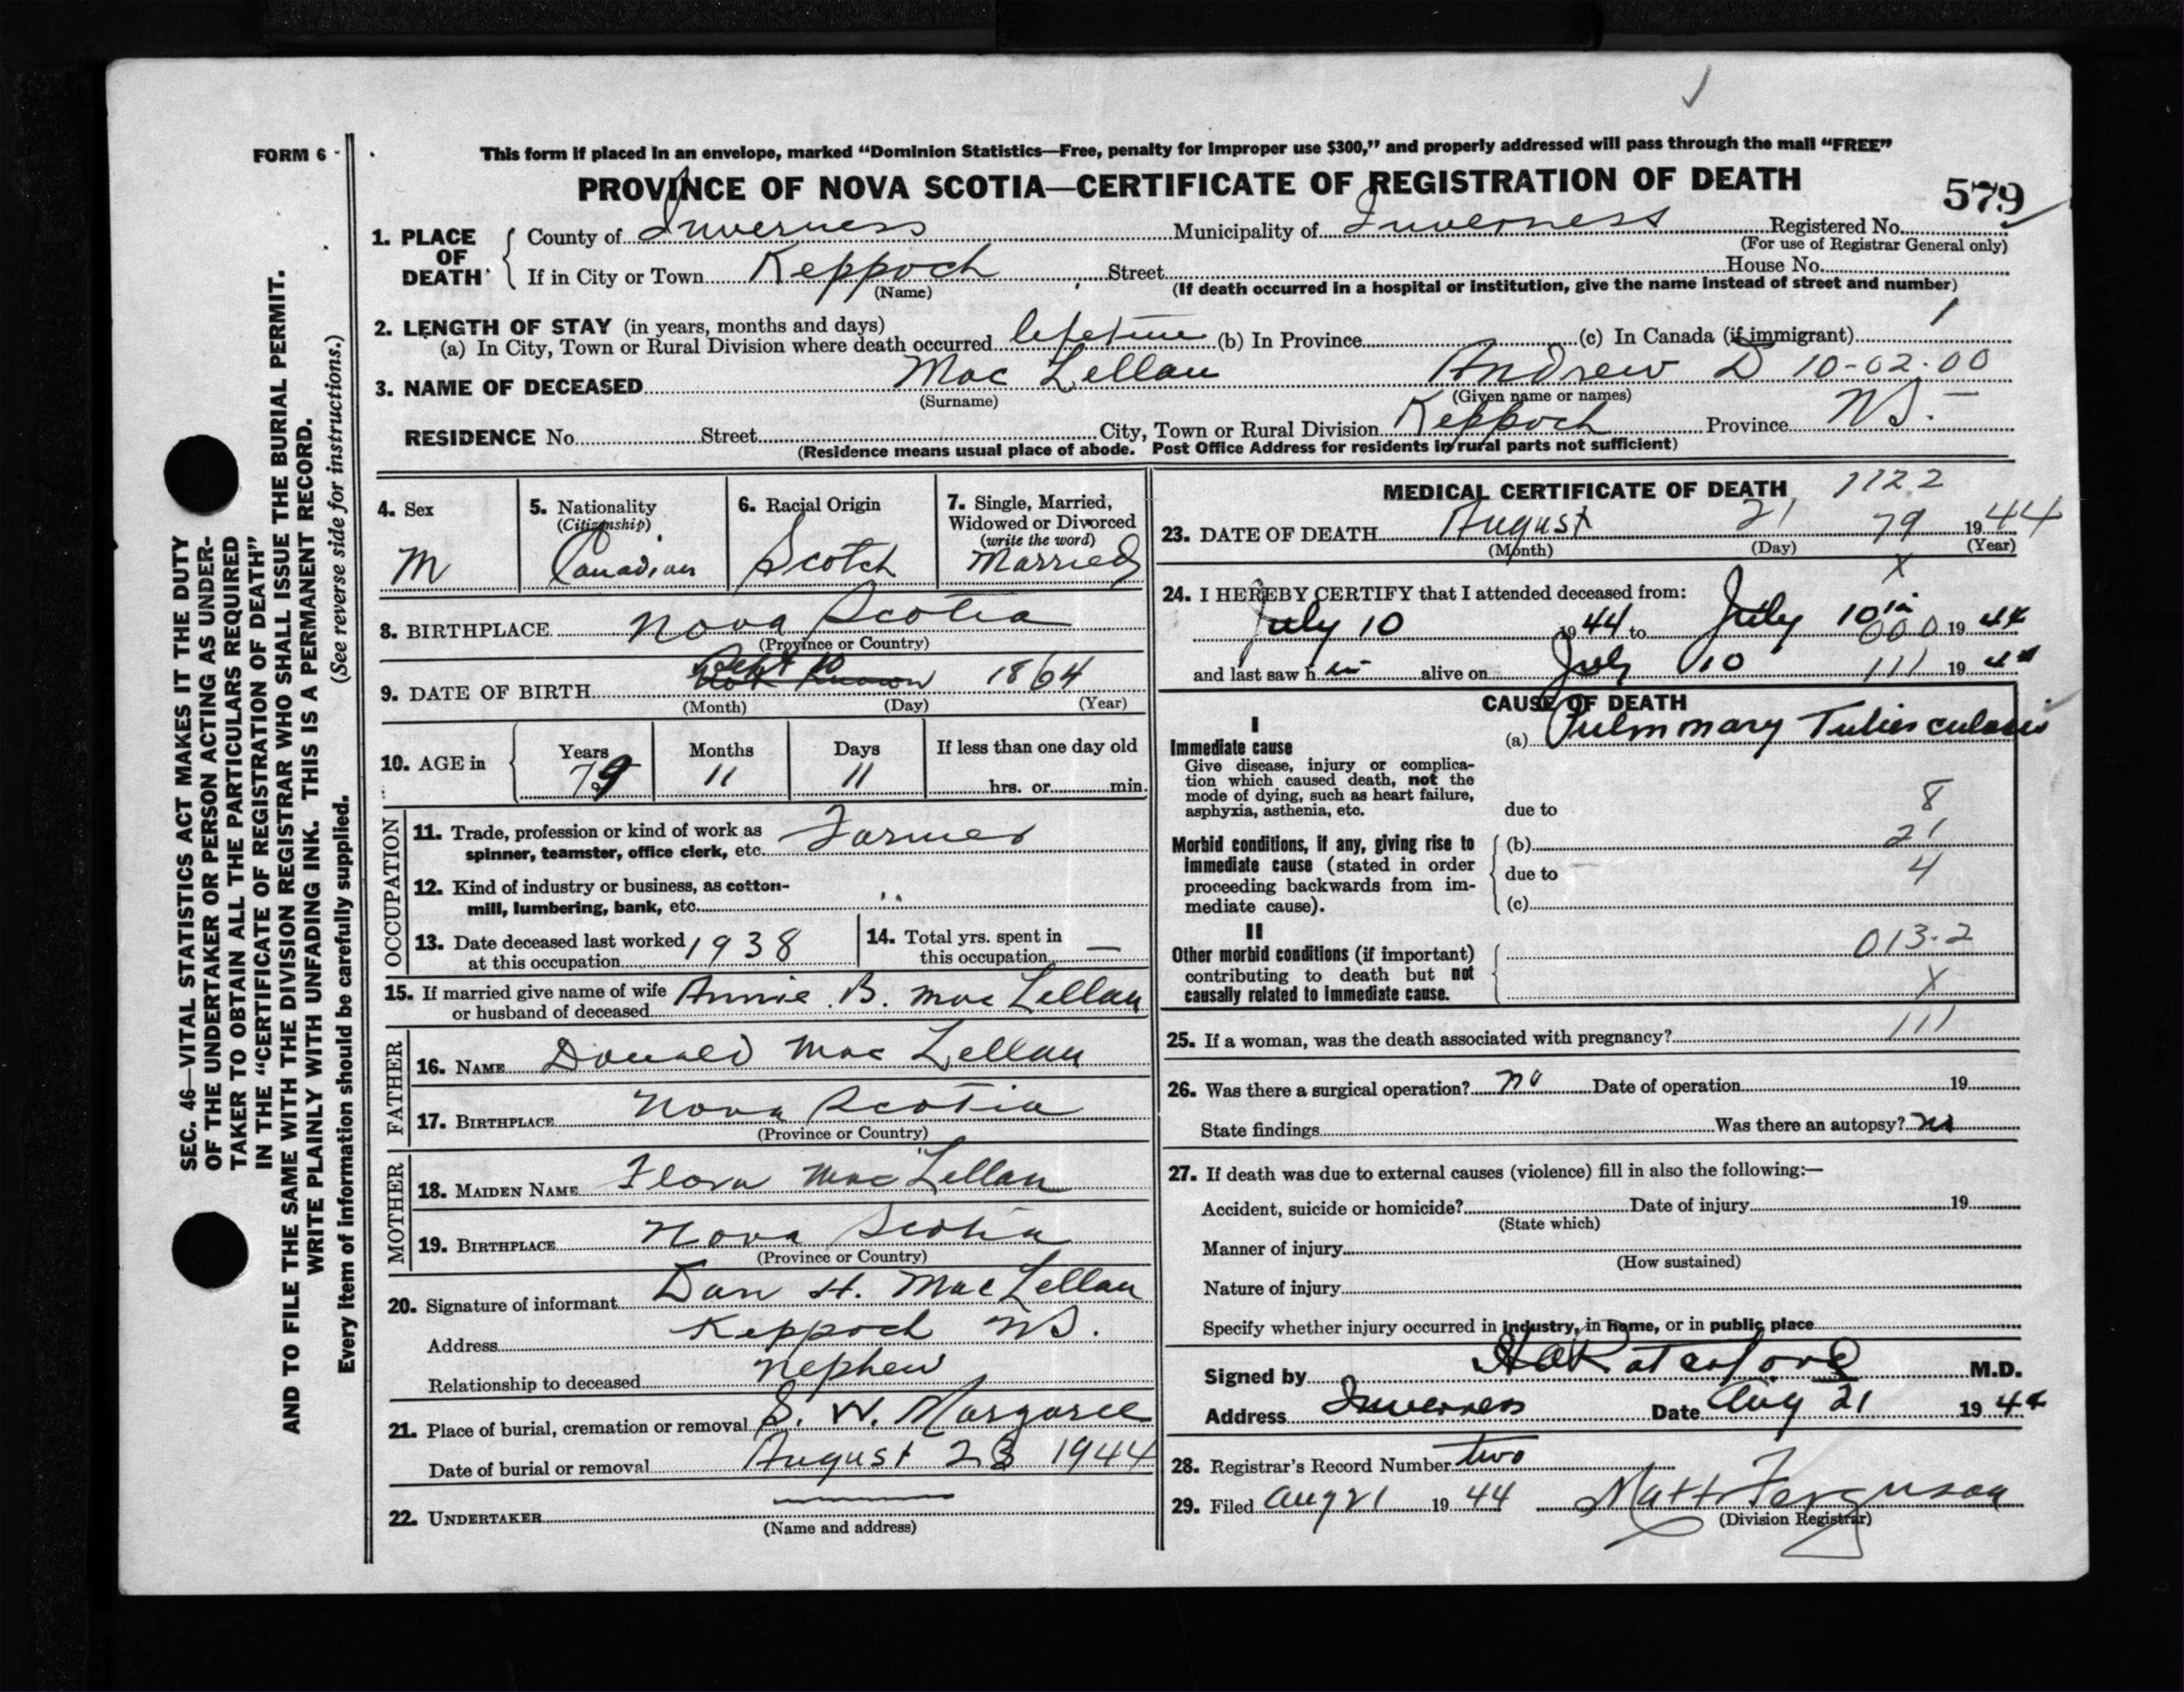 FORM 6
This form if placed in an envelope, marked "Dominion Statistics—Free, penalty for improper use $300," and properly addressed will pass through the mail "FREE"
PROVINCE OF NOVA SCOTIA—CERTIFICATE OF REGISTRATION OF DEATH
579
1. PLACE OF DEATH County of Inverness Municipality of Inverness Registered No.
(For use of Registrar General only)
If in City or Town Keppoch Street House No.
(Name) (If death occurred in a hospital or institution, give the name instead of street and number)
2. LENGTH OF STAY (in years, months and days)
(a) In City, Town or Rural Division where death occurred lifetime (b) In Province (c) In Canada (if immigrant)
3. NAME OF DECEASED Mac Lellan Andrew D 10-02-00
(Surname) (Given name or names)
RESIDENCE No. Street City, Town or Rural Division Keppoch Province NS.
(Residence means usual place of abode. Post Office Address for residents in rural parts not sufficient)
SEC. 46—VITAL STATISTICS ACT MAKES IT THE DUTY
OF THE UNDERTAKER OR PERSON ACTING AS UNDER-
TAKER TO OBTAIN ALL THE PARTICULARS REQUIRED
IN THE "CERTIFICATE OF REGISTRATION OF DEATH"
AND TO FILE THE SAME WITH THE DIVISION REGISTRAR WHO SHALL ISSUE THE BURIAL PERMIT.
WRITE PLAINLY WITH UNFADING INK. THIS IS A PERMANENT RECORD.
Every item of information should be carefully supplied. (See reverse side for instructions.)
4. Sex
M
5. Nationality
(Citizenship)
Canadian
6. Racial Origin
Scotch
7. Single, Married,
Widowed or Divorced
(write the word)
Married
8. BIRTHPLACE Nova Scotia
(Province or Country)
Sept 10
9. DATE OF BIRTH Not Known 1864
(Month) (Day) (Year)
10. AGE in Years Months Days If less than one day old
79 11 11 hrs. or min.
OCCUPATION
11. Trade, profession or kind of work as
spinner, teamster, office clerk, etc. Farmer
12. Kind of industry or business, as cotton-
mill, lumbering, bank, etc. "
13. Date deceased last worked
at this occupation 1938
14. Total yrs. spent in
this occupation —
15. If married give name of wife
or husband of deceased Annie B. Mac Lellan
FATHER
16. NAME Donald Mac Lellan
17. BIRTHPLACE Nova Scotia
(Province or Country)
MOTHER
18. MAIDEN NAME Flora Mac Lellan
19. BIRTHPLACE Nova Scotia
(Province or Country)
20. Signature of informant Dan H. MacLellan
Address Keppoch NS.
Relationship to deceased Nephew
21. Place of burial, cremation or removal S. W. Margaree
Date of burial or removal August 23 1944
22. UNDERTAKER —
(Name and address)
MEDICAL CERTIFICATE OF DEATH 1122
23. DATE OF DEATH August 21 79 1944
(Month) (Day) (Year)
X
24. I HEREBY CERTIFY that I attended deceased from:
July 10 1944 to July 10 000 1944
and last saw him alive on July 10 111 1944
CAUSE OF DEATH
I
Immediate cause
Give disease, injury or complica-
tion which caused death, not the
mode of dying, such as heart failure,
asphyxia, asthenia, etc.
(a) Pulmmary Tuberculosis
due to 8
Morbid conditions, if any, giving rise to
immediate cause (stated in order
proceeding backwards from im-
mediate cause).
(b) 21
due to 4
(c)
II
Other morbid conditions (if important)
contributing to death but not
causally related to immediate cause.
013.2
X
25. If a woman, was the death associated with pregnancy? 111
26. Was there a surgical operation? no Date of operation 19
State findings Was there an autopsy? no
27. If death was due to external causes (violence) fill in also the following:—
Accident, suicide or homicide? Date of injury 19
(State which)
Manner of injury
(How sustained)
Nature of injury
Specify whether injury occurred in industry, in home, or in public place
Signed by M.D.
Address Inverness Date Aug 21 1944
28. Registrar's Record Number two
29. Filed Aug 21 1944 Matt Ferguson
(Division Registrar)